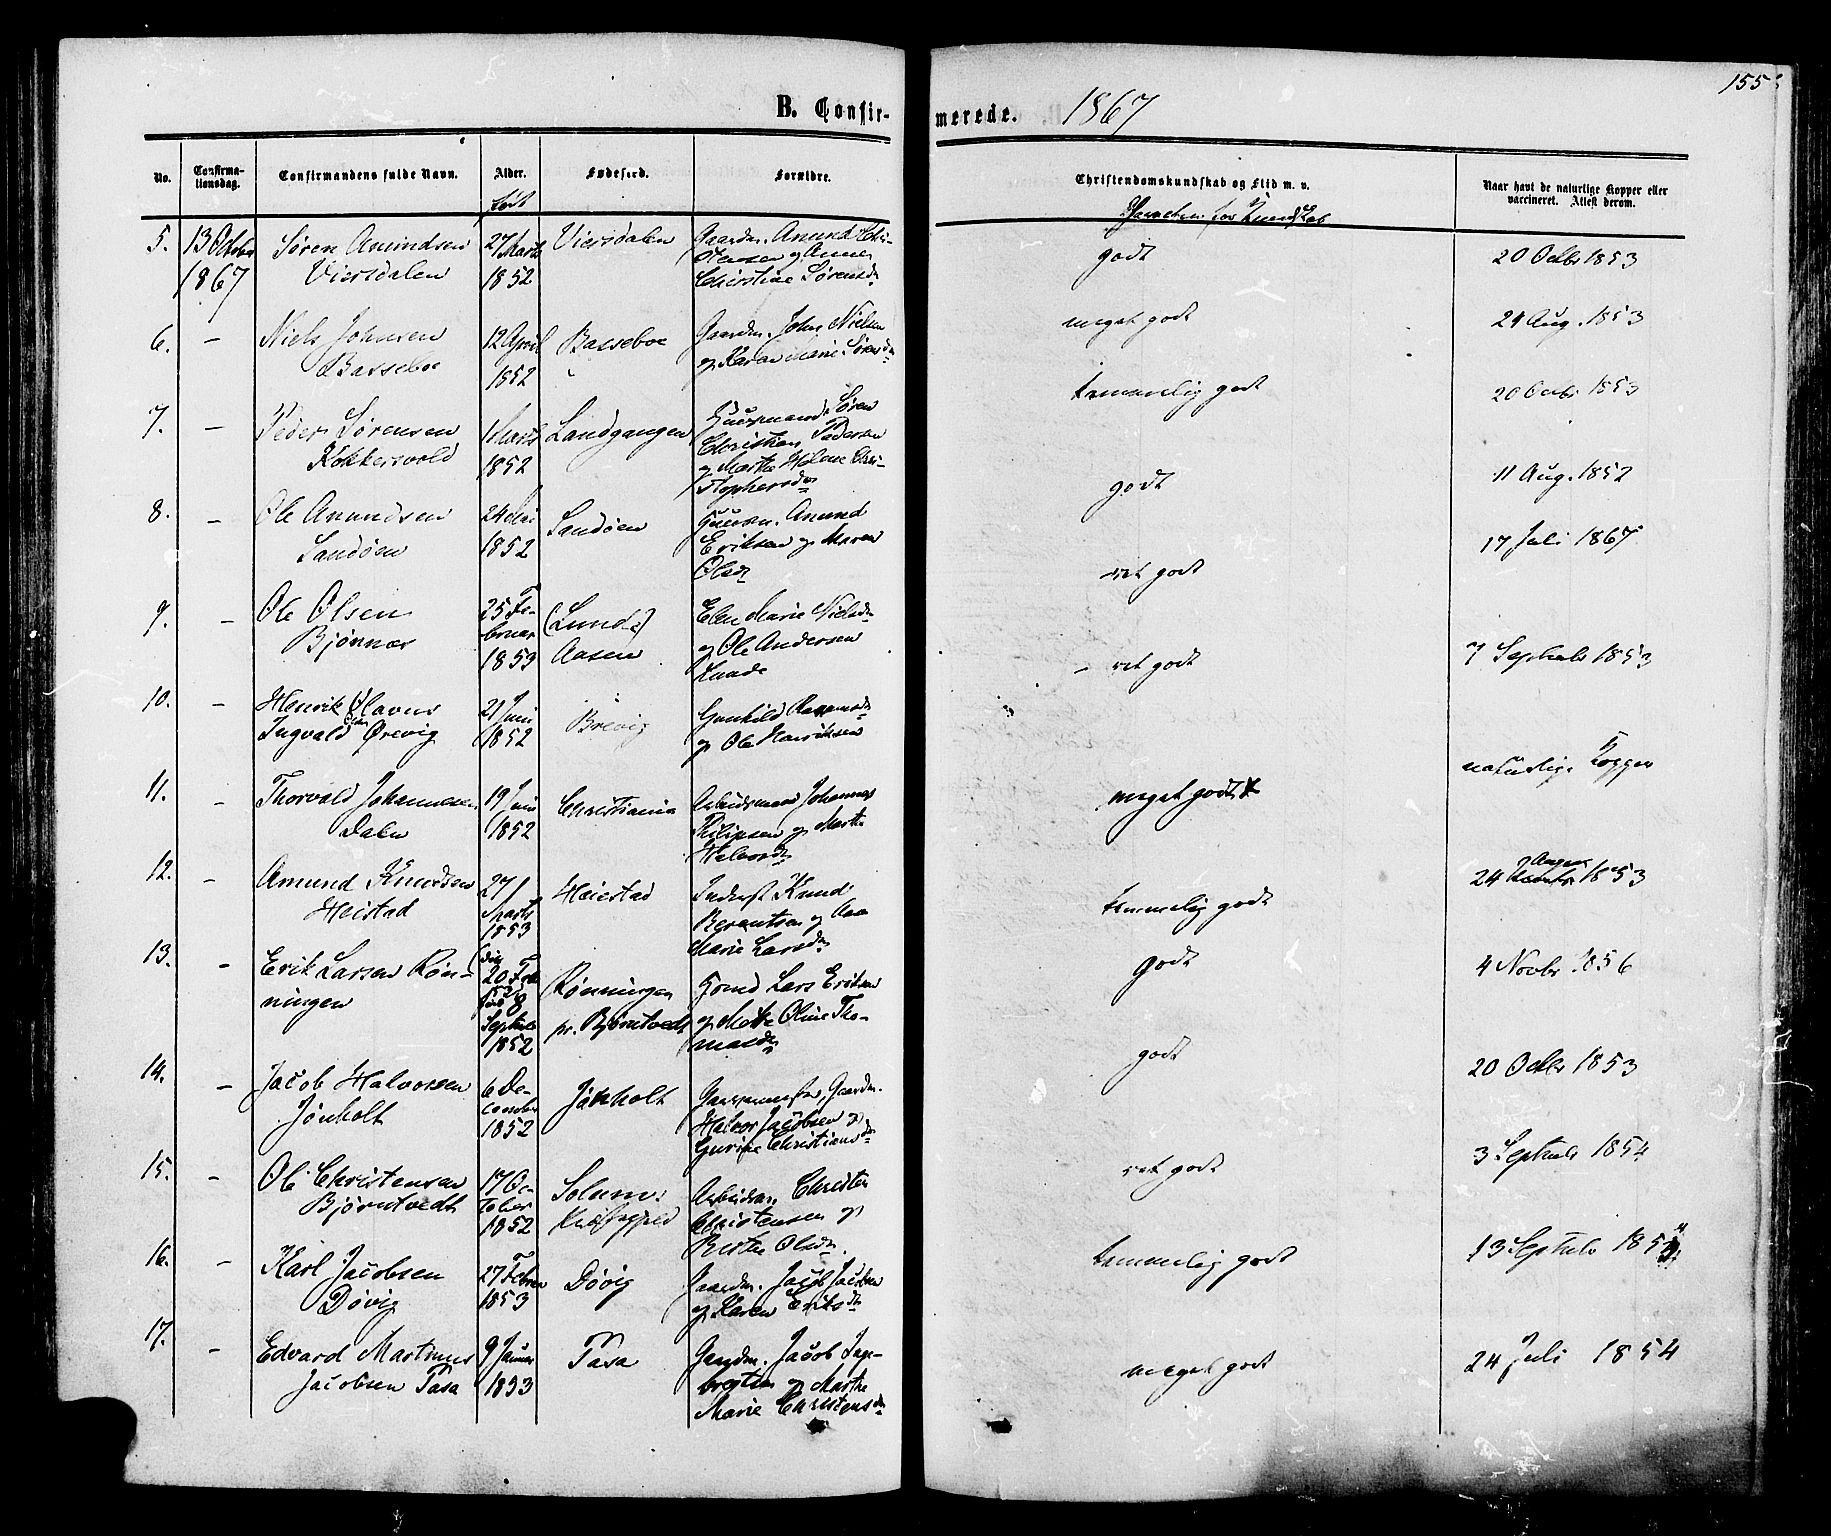 155
B. Confir-
merede. 1867
No.
Confirma-
tionsdag.
Confirmandens fulde Navn.
Alder.
født
Fødested.
Forældre.
Christendomskundskab og Flid m. v.
for Kundskab
Naar havt de naturlige Kopper eller
vaccineret. Attest derom.
5. 13 October
1867
Søren Amundsen
Viersdalen
27 Marts
1852
Viersdalen
Gaardm. Anund Chri-
stensen og Anne
Christine Sørensdr
godt
20 Octbr 1853
6. –
Niels Johnsen
Basseboe
12 April
1852
Basseboe
Gaardm. John Nielsen
og Karen Marie Sørensdr
meget godt
29 Aug. 1853
7. –
Peder Sørensen
Kokkersvold
1 Marts
1852
Landgangen
Huusmand Søren
Christian Pedersen
og Marthe Helene Chri-
stophersdr
temmelig godt
20 Octbr 1853
8. –
Ole Anundsen
Sandøen
24 Mai
1852
Sandøen
Huusm. Anund
Eriksen og Maren
Olsdr
godt
11 Aug. 1852
9. –
Ole Olsen
Bjønnes
25 Fe-
bruar
1853
(Lunde)
Aasen
Elen Marie Nielsdr
og Ole Andersen
Lunde
ret godt
17 Juli 1867
10. –
Henrik Olavus
Ingvald Olsen Ørevig
21 Juni
1852
Brevig
Gunhild Rasmusdr
og Ole Henriksen
– ret godt
7 Septbr 1853
11. –
Thorvald Johannesen
Dalen
19 Juni
1852
Christiania
Arbeidsmand Johannes
Philipsen og Marthe
Halvorsdr
meget godt
naturlige Kopper
12. –
Amund Knudsen
Heistad
27
Marts
1853
Heiestad
Inderst Knud
Berentsen og Ane
Marie Larsdr
temmelig godt
24 August 1853
13. –
Erik Larsen Røn-
ningen
20 Feb
8
Septbr
1852
Rønningen
pr. Bjørntvedt
Lars Eriksen
og Mette Oline Tho-
masdr
godt
4 Novbr 1856
14. –
Jacob Halvorsen
Jønholt
6 De-
cember
1852
Jønholt
Gaardm.
Halvor Jacobsen og
Gurine Christiansdr
godt
20 Octbr 1853
15. –
Ole Christensen
Bjørntvedt
17 Oc-
tober
1852
Solum
Præstegjeld
Arbeidsm. Christen
Christensen og
Berthe Olsdr.
ret godt
3 Septbr 1854
16. –
Karl Jacobsen
Døvig
27 Febru
1853
Døvig
Gaardm. Jacob Jacobsen
og Karen Eriksdr
temmelig godt
13 Septbr 1854
17. –
Edvard Martinus
Jacobsen Tasa
9 Januar
1853
Tasa
Gaardm. Jacob Inge-
bregtsen og Marthe
Marie Christensdr
meget godt
24 Juli 1854